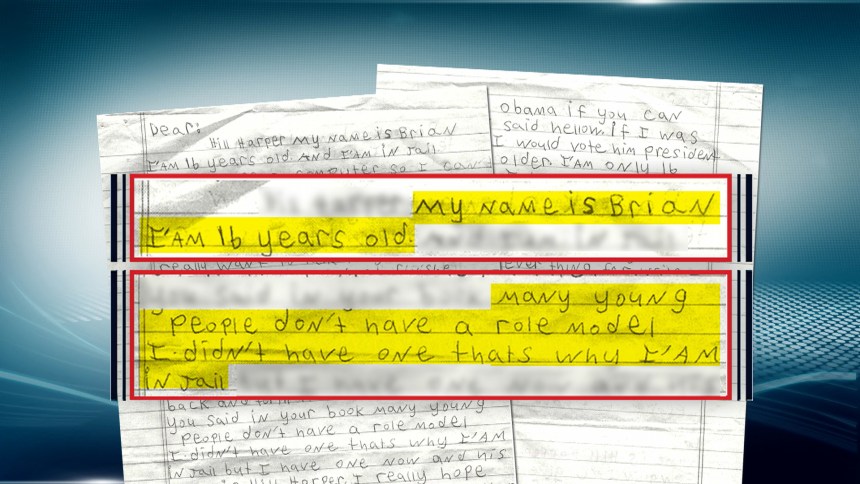 Dear:
Hill Harper My name is Brian
I'AM 16 years old AND I'AM in Jail
computer so I can
obama if you can
said hellow. if I was
I would vote him president
older. I'AM only 16
My name is Brian
I'AM 16 years old.
really want to
ever thing
many young
people don't have a role model
I didn't have one thats why I'AM
in Jail
back and form
you said in your book many young
people don't have a role model
I didn't have one thats why I'AM
in Jail but I have one now and his
Hill Harper. I really hope